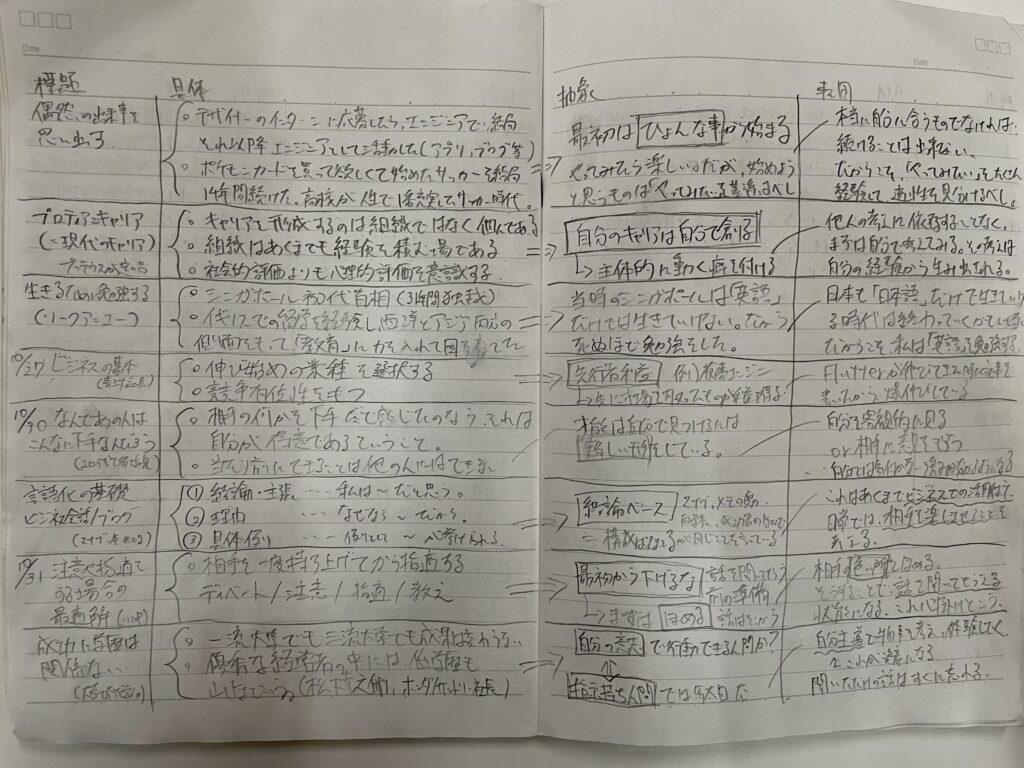 Date
標題 具体
偶然の出来事を
思い出す
○ デザイナーのインターンに応募したら、エンジニアで、結局
それ以降エンジニアとして活動した(アプリ、ブログ等
○ ポケモンカードを買って欲しくて始めたサッカーを結局
14年間続けた。高校が人生で1番充実してサッカー時代。
プロティアンキャリア
(=現代のキャリア)
○ キャリアを形成するのは組織ではなく個人である
○ 組織はあくまでも経験を積む場である
○ 社会的評価よりも心理的評価を意識する。
生きるために勉強する
(リークアンユー)
○ シンガポール初代首相(31年間独裁)
○ イギリスでの留学を経験し、西洋とアジア両方の
側面をもって「教育」に力を入れて国を育てた
10/27 ビジネスの基本
○ 伸び始めの業種を選択する
○ 競争有位性をもつ
10/30 なんであの人は
こんなに下手なんだろう
○ 相手の何かを下手だと感じたのなら、それは
自分が得意であるということ。
○ 当たり前にできることは他の人にはできない
言語化の基礎
ビジ社会法/ブログ
① 結論・主張 … 私は〜だと思う。
② 理由 … なぜなら〜だから。
③ 具体例 … 例として〜が挙げられる。
10/31 注意や指適で
する場合の
最適解
○ 相手を一度持ち上げてから指適する
ディベート/注意/指適/教え
成功に学歴は
関係ない
○ 一流大学でも三流大学でも成果は変わらない
○ 優秀な経営者の中には、低学歴も
山ほどいる。(松下幸之助、ホンダ
Date
抽象 転用
最初は ひょんな事 が始まる
やってみたら楽しいのだが、始めよう
と思うものは「やってみたい」を基準にすべし
本当に自分に合うものでなければ
続けることは出来ない。
だからこそ、「やってみたい」をたくさん
経験して適性を見分けるべし。
自分のキャリアは自分で創る
↳ 主体的に動く癖を付ける
他人の考えに依存することなく、
まずは自分で考えてみる。その考えは
自分の経験から生み出される。
当時のシンガポールは「英語」
だけでは生きていけない。だから
死ぬほど勉強をした。
日本も「日本語」だけで生きていけ
る時代は終わっていくかもしれない。
だからこそ、私は「英語」を勉強する。
先行者利益 例)検索エンジン
Flutterが伸びてきた時に記事を
書いたから、爆伸びしている
才能は自分で見つけるには
難しい形をしている。
自分を客観的に見る
or 相手に意見をもらう
結論ベース
= 構成は異なるが同じことを言っている
これはあくまでビジネスでの活用法で
日常では、相手を楽しませることを
最初から下げるな 話を聞いてもらう
前の準備
↳ まずは ほめる 話はそこから
相手を褒め認める。
そうすることで、話を聞いてもらえる
状態になる。これ心掛けとこう。
自分の意思 で行動できる人間か?
⇕
指示待ち人間 では駄目だ
自分主導で物事を考え、体験してく
↑ これが資産になる
聞いただけの話はすぐに忘れる。